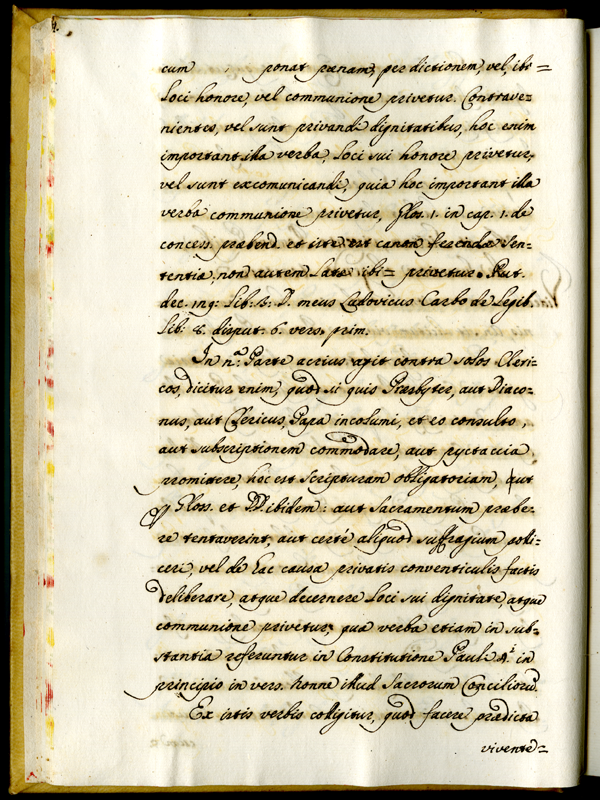 cum ponat pœnam, per dictionem, vel, ibi=
Loci honore, vel communione privetur. Contrave=
nientes, vel sunt privandi dignitatibus, hoc enim
important illa verba Loci sui honore privetur,
vel sunt excomunicandi, quia hoc important illa
verba communione privetur, Glos. 1. in cap. 1. de
concess. præbend. et iste est canon ferendæ Sen=
tentiæ, non autem Latæ ibi= privetur. Rut.
dec. ing: Lib. 8. D. meus Ludovicus Carbo de Legib.
Lib: 8. disput. 6. vers. prim.
In n.ª Parte acrius agit contra solos Cleri=
cos, dicitur enim, quod si quis Præsbyter, aut Diaco=
nus, aut Clericus, Papa incolumi, et eo consulto,
aut subscriptionem commodare, aut pyctaccia
promittere, hoc est scripturam obligatoriam, aut
Glos. et DD. ibidem: aut Sacramentum præbe=
re tentaverint, aut certé aliquod suffragium polli=
ceri, vel de hac causa privatis conventiculis factis
deliberare, atque decernere Loci sui dignitate, atque
communione privetur, quæ verba etiam in sub=
stantia referuntur in Constitutione Pauli 4.i in
principio in vers. honne illud Sacrorum Conciliorũ.
Ex istis verbis colligitur, quod facere prædicta
vivente=